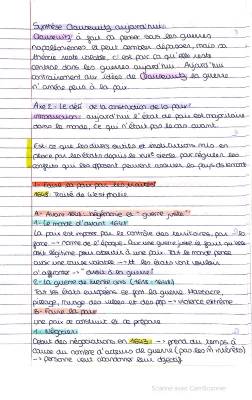 Synthèse Clausewitz aujourd'hui:
Clausewitz à fait sa penser sur les guerres
napoléoniennes et peut sembler dépasser, mais sa
théorie reste
rentre dans les guerres aujourd'hui. Aujourd'hui
contrairement aux idées de Clausewitz la guerre
n'amène plus à la paix
Axe 2 - Le défi de la construction de la paix
Introduction: aujourd'hui l'état de paix est majoritaire
dans le monde, ce qui n'était pas le cas avant.
Est ce que les divers outils et institutions mis en
place par les états depuis le siècle par réguler les
conflits qui les opposent peuvent assurer la paix
I - Faire la paix par les traités
1648: Traité de Westphalie
A - Avant 1648: hégémonie et "guerre juste"
1 - Le monde d'avant 1648
La paix est imposer par le contrôle des territoires, par la
force → de l'époque. Par une guerre juste il faut qu'elle
soit légitime pour aboutir à une paix. Tout le monde pense
avoir une cause valable → les états vont vouloir
s'affronter → "droit à la guerre"
2 - La guerre de trente ans (1618-1648)
Tout les états européens se font la guerre. Massacre,
pillage, des villes et des pop → violence extrême
B - Faire la paix
une paix se construit et se prépare
1 - Négocier
Début des négociations en 1643 → prend du temps à
cause du nombre d'acteurs de guerre (pas les m intérêts)
→ personne veut abandonner leur objectif
Scanné avec CamScanner